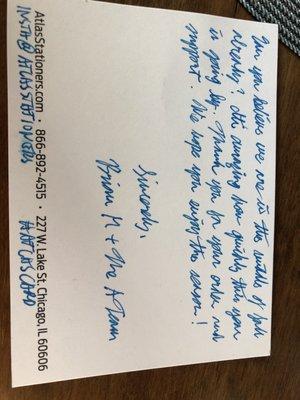 Can you believe we are in the middle of fall
already? It's amazing how quickly this year
is going by. Thank you for your order and
support. We hope you enjoy the season!
Sincerely,
Brian M + The A Team
AtlasStationers.com • 866-892-4515 • 227 W. Lake St. Chicago, IL 60606
INSTA@ATLASSTATIONERS